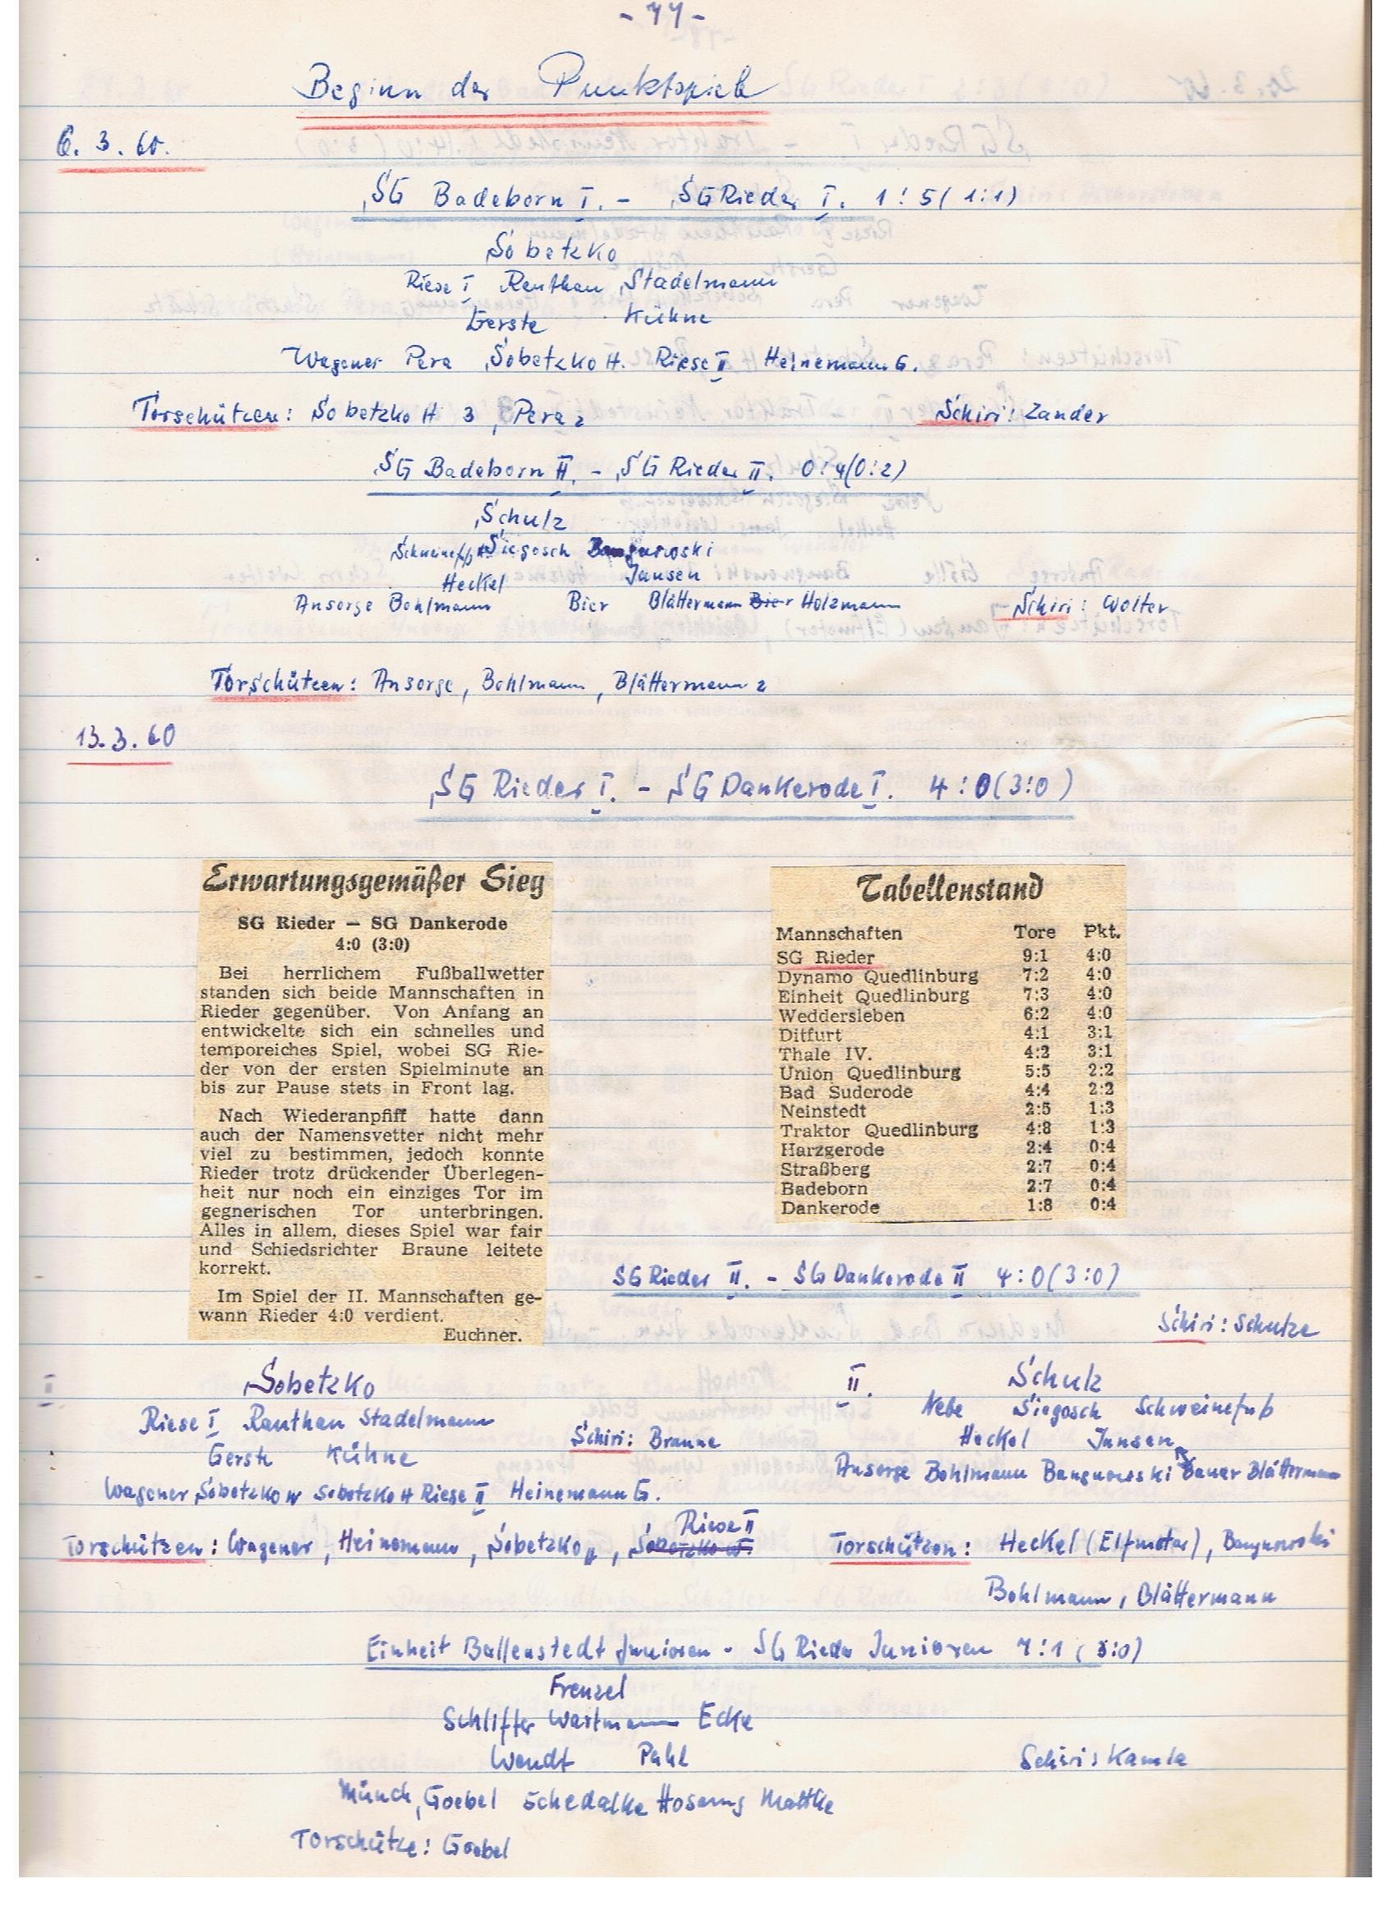 Beginn der Punktspiele
6. 3. 60.
SG Badeborn I. - SG Rieder I. 1:5 (1:1)
Sobetzko
Riese I Rauthan Stadelmann
Gerste Kühne
Wagener Pera Sobetzko H. Riese II Heinemann G.
Torschützen: Sobetzko H 3, Pera 2
Schiri: Zander
SG Badeborn II. - SG Rieder II. 0:4 (0:2)
Schulz
Siegosch Bangnowski
Heckel Jansen
Ansorge Bohlmann Bier Blättermann Bier Holzmann
Schiri: Wolter
Torschützen: Ansorge, Bohlmann, Blättermann 2
13. 3. 60
SG Rieder I. - SG Dankerode I. 4:0 (3:0)
Erwartungsgemäßer Sieg
SG Rieder — SG Dankerode
4:0 (3:0)
Bei herrlichem Fußballwetter
standen sich beide Mannschaften in
Rieder gegenüber. Von Anfang an
entwickelte sich ein schnelles und
temporeiches Spiel, wobei SG Rie-
der von der ersten Spielminute an
bis zur Pause stets in Front lag.
Nach Wiederanpfiff hatte dann
auch der Namensvetter nicht mehr
viel zu bestimmen, jedoch konnte
Rieder trotz drückender Überlegen-
heit nur noch ein einziges Tor im
gegnerischen Tor unterbringen.
Alles in allem, dieses Spiel war fair
und Schiedsrichter Braune leitete
korrekt.
Im Spiel der II. Mannschaften ge-
wann Rieder 4:0 verdient.
Euchner.
Tabellenstand
Mannschaften Tore Pkt.
SG Rieder 9:1 4:0
Dynamo Quedlinburg 7:2 4:0
Einheit Quedlinburg 7:3 4:0
Weddersleben 6:2 4:0
Ditfurt 4:1 3:1
Thale IV. 4:2 3:1
Union Quedlinburg 5:5 2:2
Bad Suderode 4:4 2:2
Neinstedt 2:5 1:3
Traktor Quedlinburg 4:8 1:3
Harzgerode 2:4 0:4
Straßberg 2:7 0:4
Badeborn 2:7 0:4
Dankerode 1:8 0:4
SG Rieder II. - SG Dankerode II 4:0 (3:0)
Schiri: Schulze
I Sobetzko
Riese I Rauthan Stadelmann
Gerste Kühne
Wagener Sobetzko W Sobetzko H Riese II Heinemann G.
Schiri: Braune
Torschützen: Wagener, Heinemann, Sobetzko H, Riese II
II. Schulz
Nebe Siegosch Schweinefuß
Heckel Jansen
Ansorge Bohlmann Bangnowski Bauer Blättermann
Torschützen: Heckel (Elfmeter), Bangnowski
Bohlmann, Blättermann
Einheit Ballenstedt Junioren - SG Rieder Junioren 7:1 (3:0)
Frenzel
Schliffer Wartmann Ecke
Wendt Pahl
Schiri: Kamla
Münch, Goebel Schedalke Hosang Mattke
Torschütze: Goebel